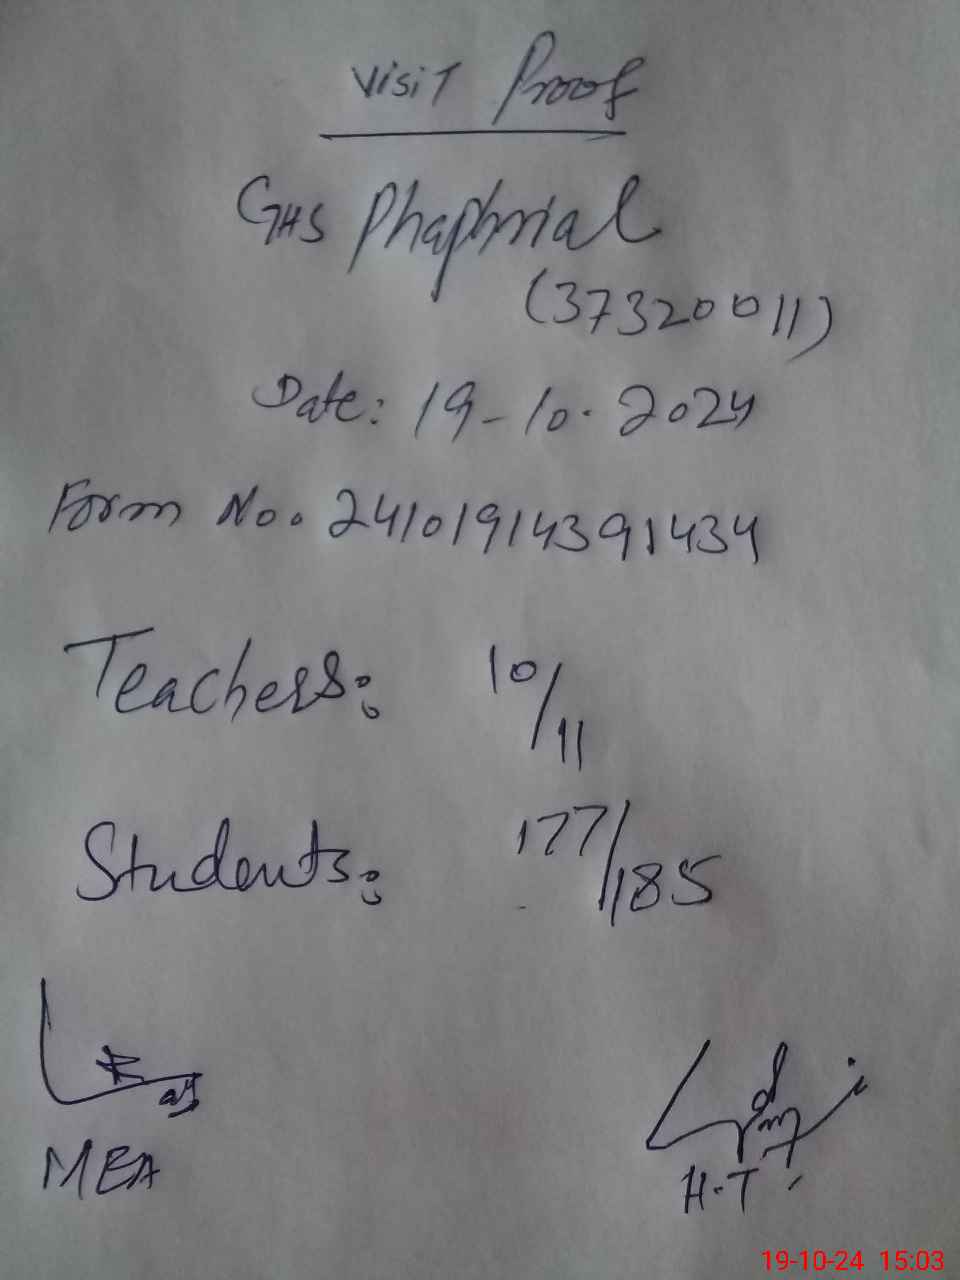 Visit Proof
GHS Phaphrial
(37320011)
Date: 19-10-2024
Form No. 24101914391434
Teachers: 10/11
Students: 177/185
MEA
H.T
19-10-24 15:03